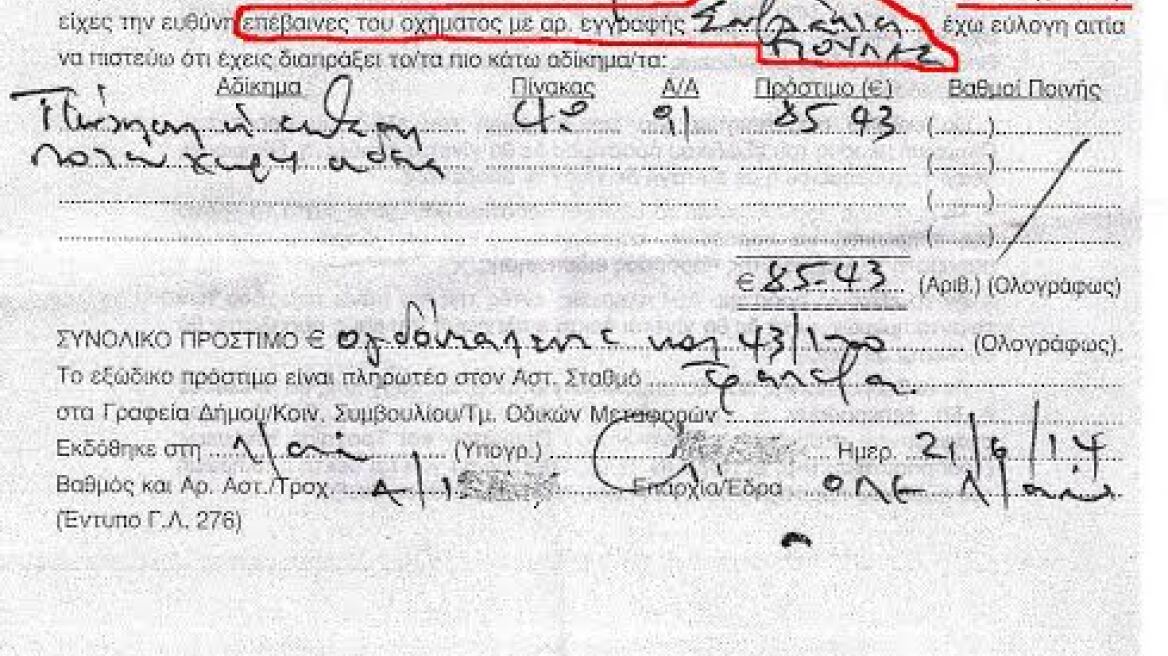 είχες την ευθύνη επέβαινες του οχήματος με αρ. εγγραφής έχω εύλογη αιτία
να πιστεύω ότι έχεις διαπράξει το/τα πιο κάτω αδίκημα/τα:
Αδίκημα Πίνακας Α/Α Πρόστιμο (€) Βαθμοί Ποινής
Πώληση 4º 91 85 43 (......)
ποτών χωρίς άδεια (......)
(......)
(......)
€ 85-43 (Αριθ.) (Ολογράφως)
ΣΥΝΟΛΙΚΟ ΠΡΟΣΤΙΜΟ € ογδόνταπεντε και 43/100 (Ολογράφως).
Το εξώδικο πρόστιμο είναι πληρωτέο στον Αστ. Σταθμό
στα Γραφεία Δήμου/Κοιν. Συμβουλίου/Τμ. Οδικών Μεταφορών
Εκδόθηκε στη (Υπογρ.) Ημερ. 21/6/14
Βαθμός και Αρ. Αστ./Τροχ. Α/1 Επαρχία/Έδρα
(Έντυπο Γ.Λ. 276)